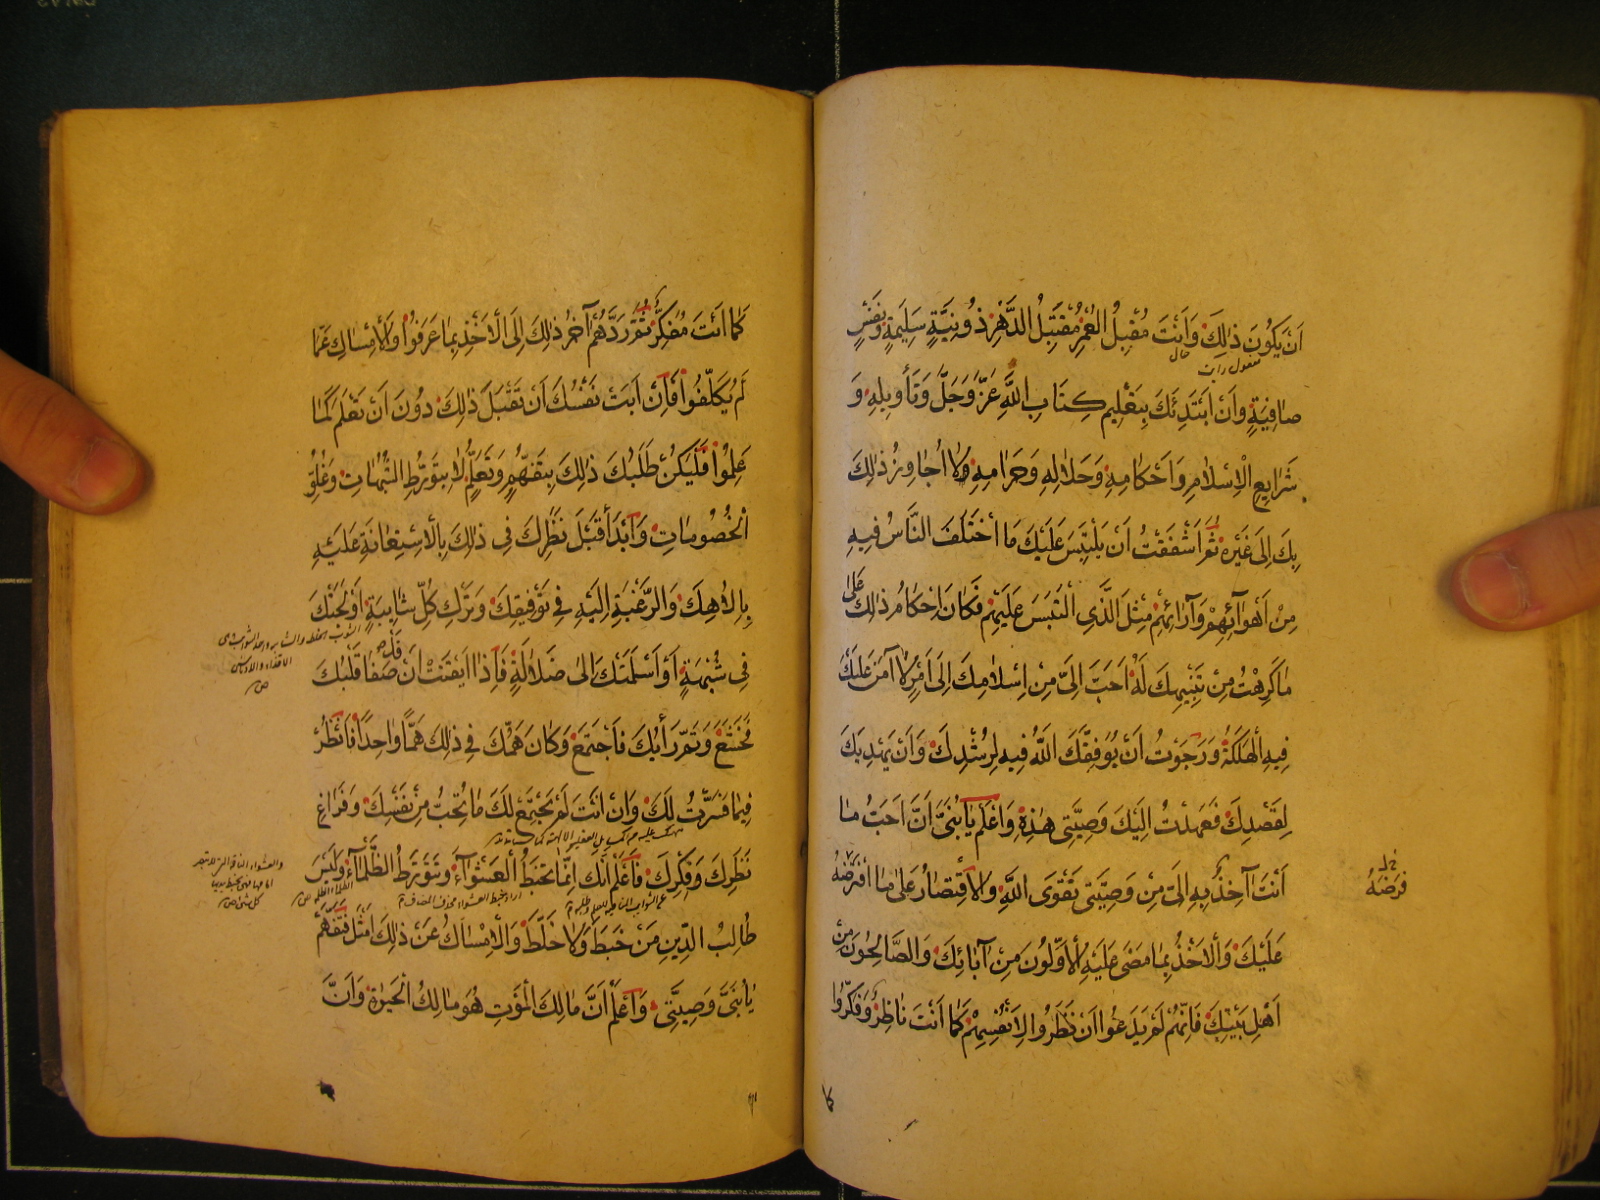 اَنْ يَكُونَ ذٰلِكَ وَاَنْتَ مُقْبِلُ الْعُمُرِ مُقْتَبِلُ الدَّهْرِ ذُو نِيَّةٍ سَلِيمَةٍ وَنَفْسٍ
صٰافِيَةٍ وَاَنْ اَبْتَدِئَكَ بِتَعْلِيمِ كِتَابِ اللّٰهِ عَزَّ وَجَلَّ وَتَأْوِيلِهِ وَ
شَرَايِعِ الْاِسْلَامِ وَاَحْكَامِهِ وَحَلَالِهِ وَحَرَامِهِ وَلَا اُجَاوِزُ ذٰلِكَ
بِكَ اِلَى غَيْرِهِ ثُمَّ اَشْفَقْتُ اَنْ يَلْتَبِسَ عَلَيْكَ مَا اخْتَلَفَ النَّاسُ فِيهِ
مِنْ اَهْوَآئِهِمْ وَآرَائِهِمْ مِثْلَ الَّذِى الْتَبَسَ عَلَيْهِمْ فَكَانَ اِحْكَامُ ذٰلِكَ عَلٰى
مٰا كَرِهْتُ مِنْ تَنْبِيهِكَ لَهُ اَحَبَّ اِلَىَّ مِنْ اِسْلَامِكَ اِلَى اَمْرٍ لَا آمَنُ عَلَيْكَ
فِيهِ الْهَلَكَةَ وَرَجَوْتُ اَنْ يُوَفِّقَكَ اللّٰهُ فِيهِ لِرُشْدِكَ وَاَنْ يَهْدِيَكَ
لِقَصْدِكَ فَعَهِدْتُ اِلَيْكَ وَصِيَّتِى هٰذِهِ وَاعْلَمْ يَا بُنَىَّ اَنَّ اَحَبَّ مٰا
اَنْتَ آخِذٌ بِهِ اِلَىَّ مِنْ وَصِيَّتِى تَقْوَى اللّٰهِ وَالْاِقْتِصَارُ عَلٰى مَا افْتَرَضَهُ
فَرَضَهُ
عَلَيْكَ وَالْاَخْذُ بِمَا مَضَى عَلَيْهِ الْاَوَّلُونَ مِنْ آبَائِكَ وَالصَّالِحُونَ مِنْ
اَهْلِ بَيْتِكَ فَاِنَّهُمْ لَمْ يَدَعُوا اَنْ نَظَرُوا لِاَنْفُسِهِمْ كَمَا اَنْتَ نَاظِرٌ وَفَكَّرُوا
كما
كَمَا اَنْتَ مُفَكِّرٌ ثُمَّ رَدَّهُمْ آخِرُ ذٰلِكَ اِلَى الْاَخْذِ بِمَا عَرَفُوا وَالْاِمْسَاكِ عَمَّا
لَمْ يُكَلَّفُوا فَاِنْ اَبَتْ نَفْسُكَ اَنْ تَقْبَلَ ذٰلِكَ دُونَ اَنْ تَعْلَمَ كَمَا
عَلِمُوا فَلْيَكُنْ طَلَبُكَ ذٰلِكَ بِتَفَهُّمٍ وَتَعَلُّمٍ لَا بِتَوَرُّطِ الشُّبُهَاتِ وَغُلُوِّ
الْخُصُومَاتِ وَابْدَأْ قَبْلَ نَظَرِكَ فِى ذٰلِكَ بِالْاِسْتِعَانَةِ عَلَيْهِ
بِاِلٰهِكَ وَالرَّغْبَةِ اِلَيْهِ فِى تَوْفِيقِكَ وَتَرْكِ كُلِّ شَائِبَةٍ اَوْلَجَتْكَ
فِى شُبْهَةٍ اَوْ اَسْلَمَتْكَ اِلٰى ضَلَالَةٍ فَاِذَا اَيْقَنْتَ اَنْ قَدْ صَفَا قَلْبُكَ
فَخَشَعَ وَتَمَّ رَأْيُكَ فَاجْتَمَعَ وَكَانَ هَمُّكَ فِى ذٰلِكَ هَمًّا وَاحِدًا فَانْظُرْ
فِيمَا فَسَّرْتُ لَكَ وَاِنْ اَنْتَ لَمْ يَجْتَمِعْ لَكَ مَا تُحِبُّ مِنْ نَفْسِكَ وَفَرَاغِ
نَظَرِكَ وَفِكْرِكَ فَاعْلَمْ اَنَّكَ اِنَّمَا تَخْبِطُ الْعَشْوَآءَ وَتَتَوَرَّطُ الظَّلْمَآءَ وَلَيْسَ
طَالِبُ الدِّينِ مَنْ خَبَطَ وَلَا خَلَّطَ وَالْاِمْسَاكُ عَنْ ذٰلِكَ اَمْثَلُ فَتَفَهَّمْ
يَا بُنَىَّ وَصِيَّتِى وَاعْلَمْ اَنَّ مَالِكَ الْمَوْتِ هُوَ مَالِكُ الْحَيٰوةِ وَاَنَّ